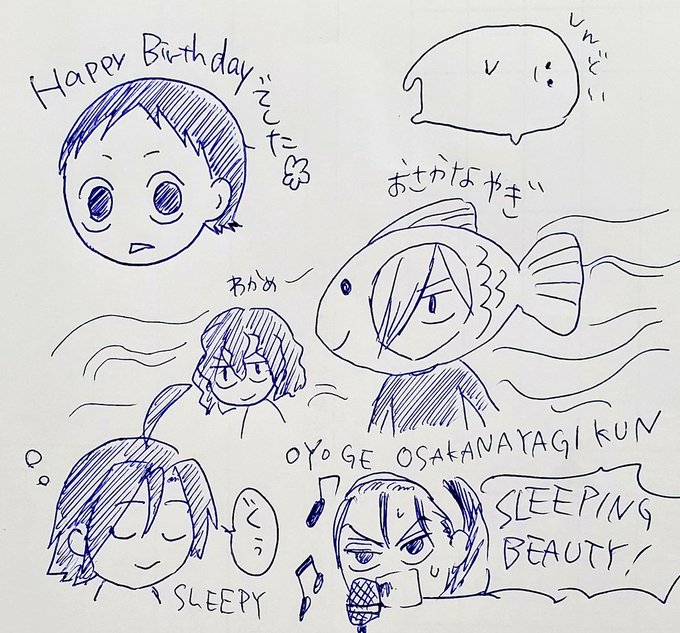 Happy Birthday でした
しんどい
おさかなやぎ
わかめー
OYOGE OSAKANAYAGI KUN
SLEEPY
SLEEPING
BEAUTY!